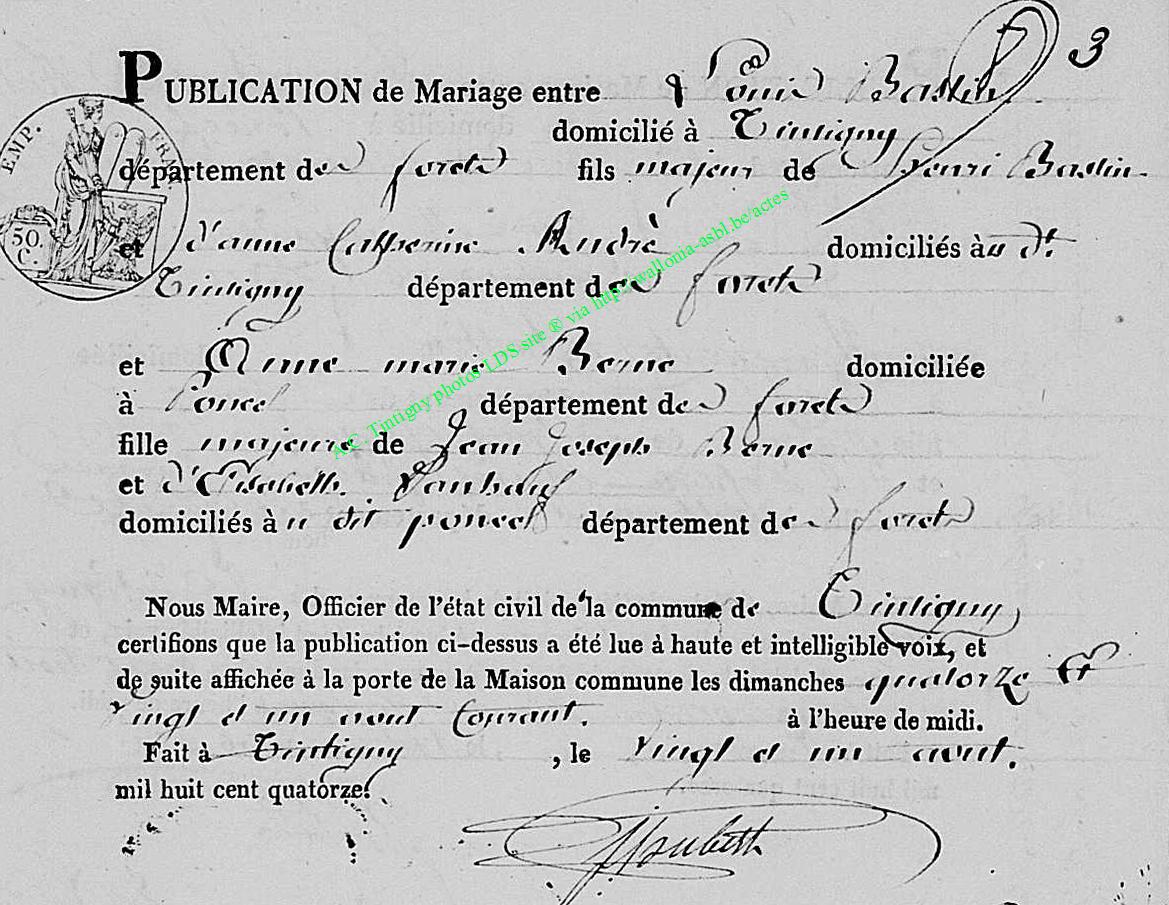 3
PUBLICATION de Mariage entre Louis Bastin
domicilié à Tintigny
EMP. FRA
département des forets fils majeur de henri Bastin
50.
C.
et d'anne Catherine André domiciliés àu dt
Tintigny département des forets
et Anne marie Berne domiciliée
à Poncel département des forets
fille majeure de Jean Joseph Berne
et d'Elisabeth
domiciliés àu dit poncel département des forets
Nous Maire, Officier de l'état civil de la commune de Tintigny
certifions que la publication ci-dessus a été lue à haute et intelligible voix, et
de suite affichée à la porte de la Maison commune les dimanches quatorze et
vingt et un aout Courant. à l'heure de midi.
Fait à Tintigny, le vingt et un aout.
mil huit cent quatorze.
A.C. Tintigny photos LDS site ® via http://wallonia-asbl.be/actes